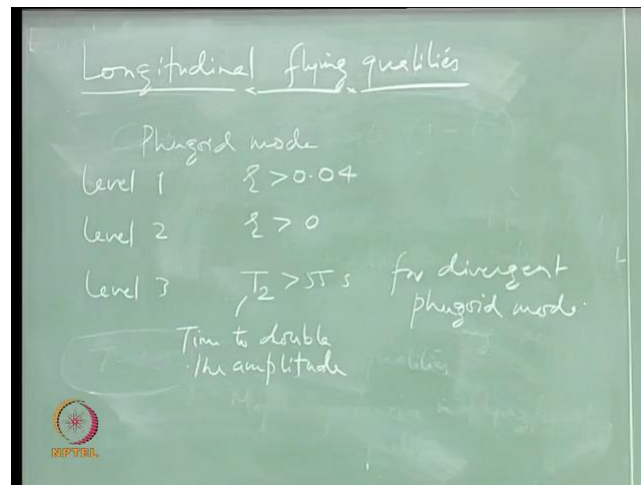 Longitudinal flying qualities
Phugoid mode
Level 1 ξ > 0.04
Level 2 ξ > 0
Level 3 T₂ > 55 s for divergent
phugoid mode.
Time to double
the amplitude
NPTEL